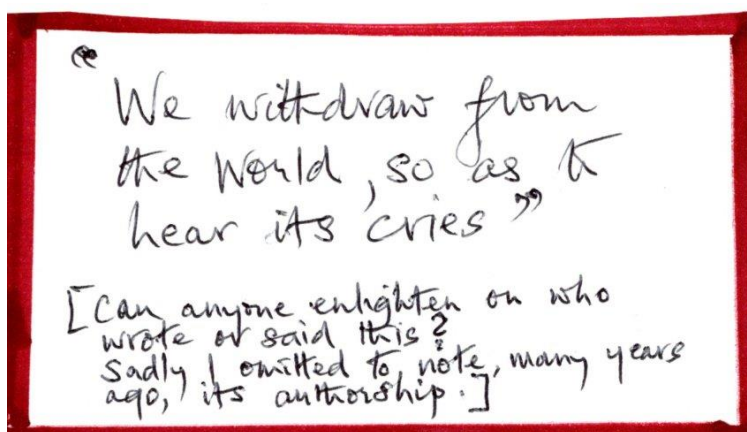 "
We withdraw from
the World, so as to
hear its cries"
[Can anyone enlighten on who
wrote or said this?
Sadly I omitted to note, many years
ago, its authorship.]